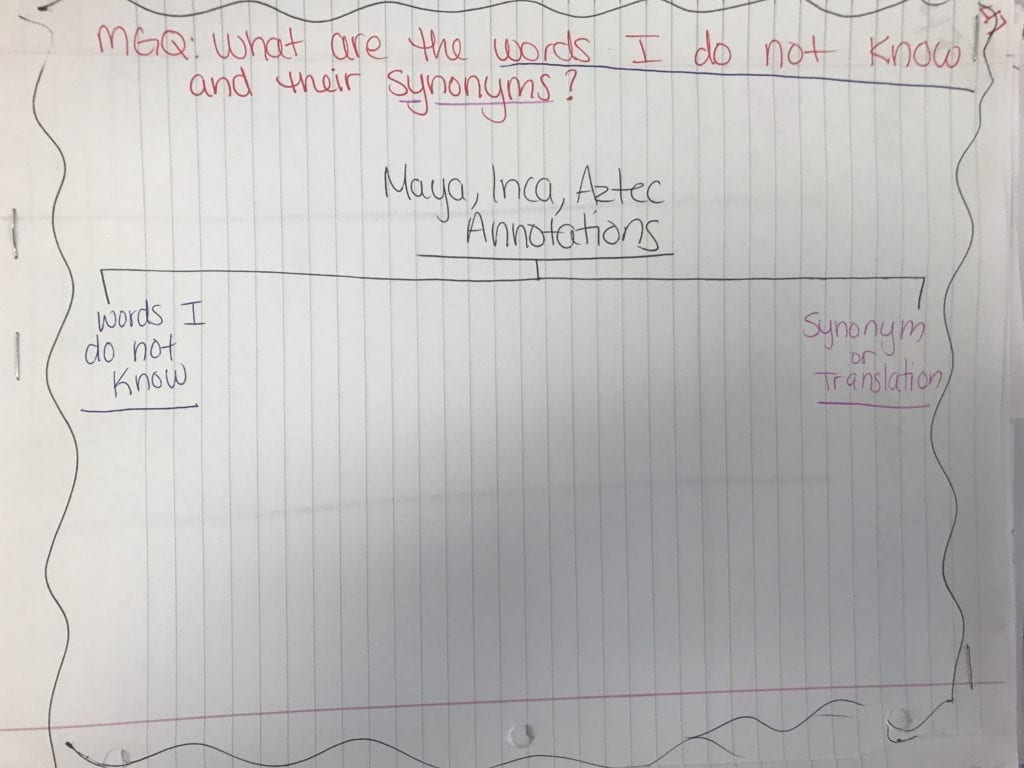 MGQ: What are the words I do not know
and their synonyms?
Maya, Inca, Aztec
Annotations
words I
do not
know
Synonym
or
Translation